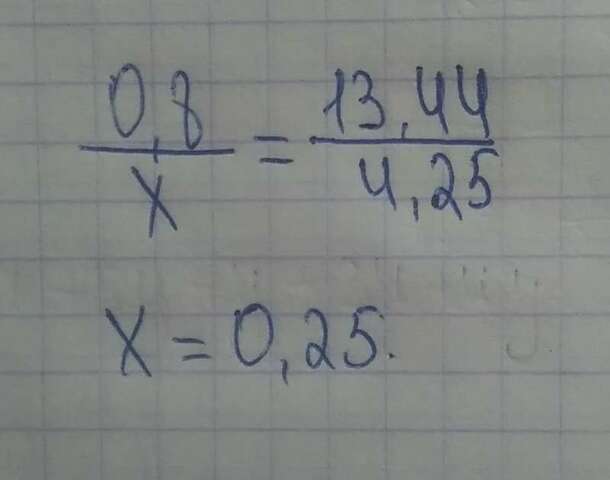 0,8/x = 13,44/4,25
x = 0,25.